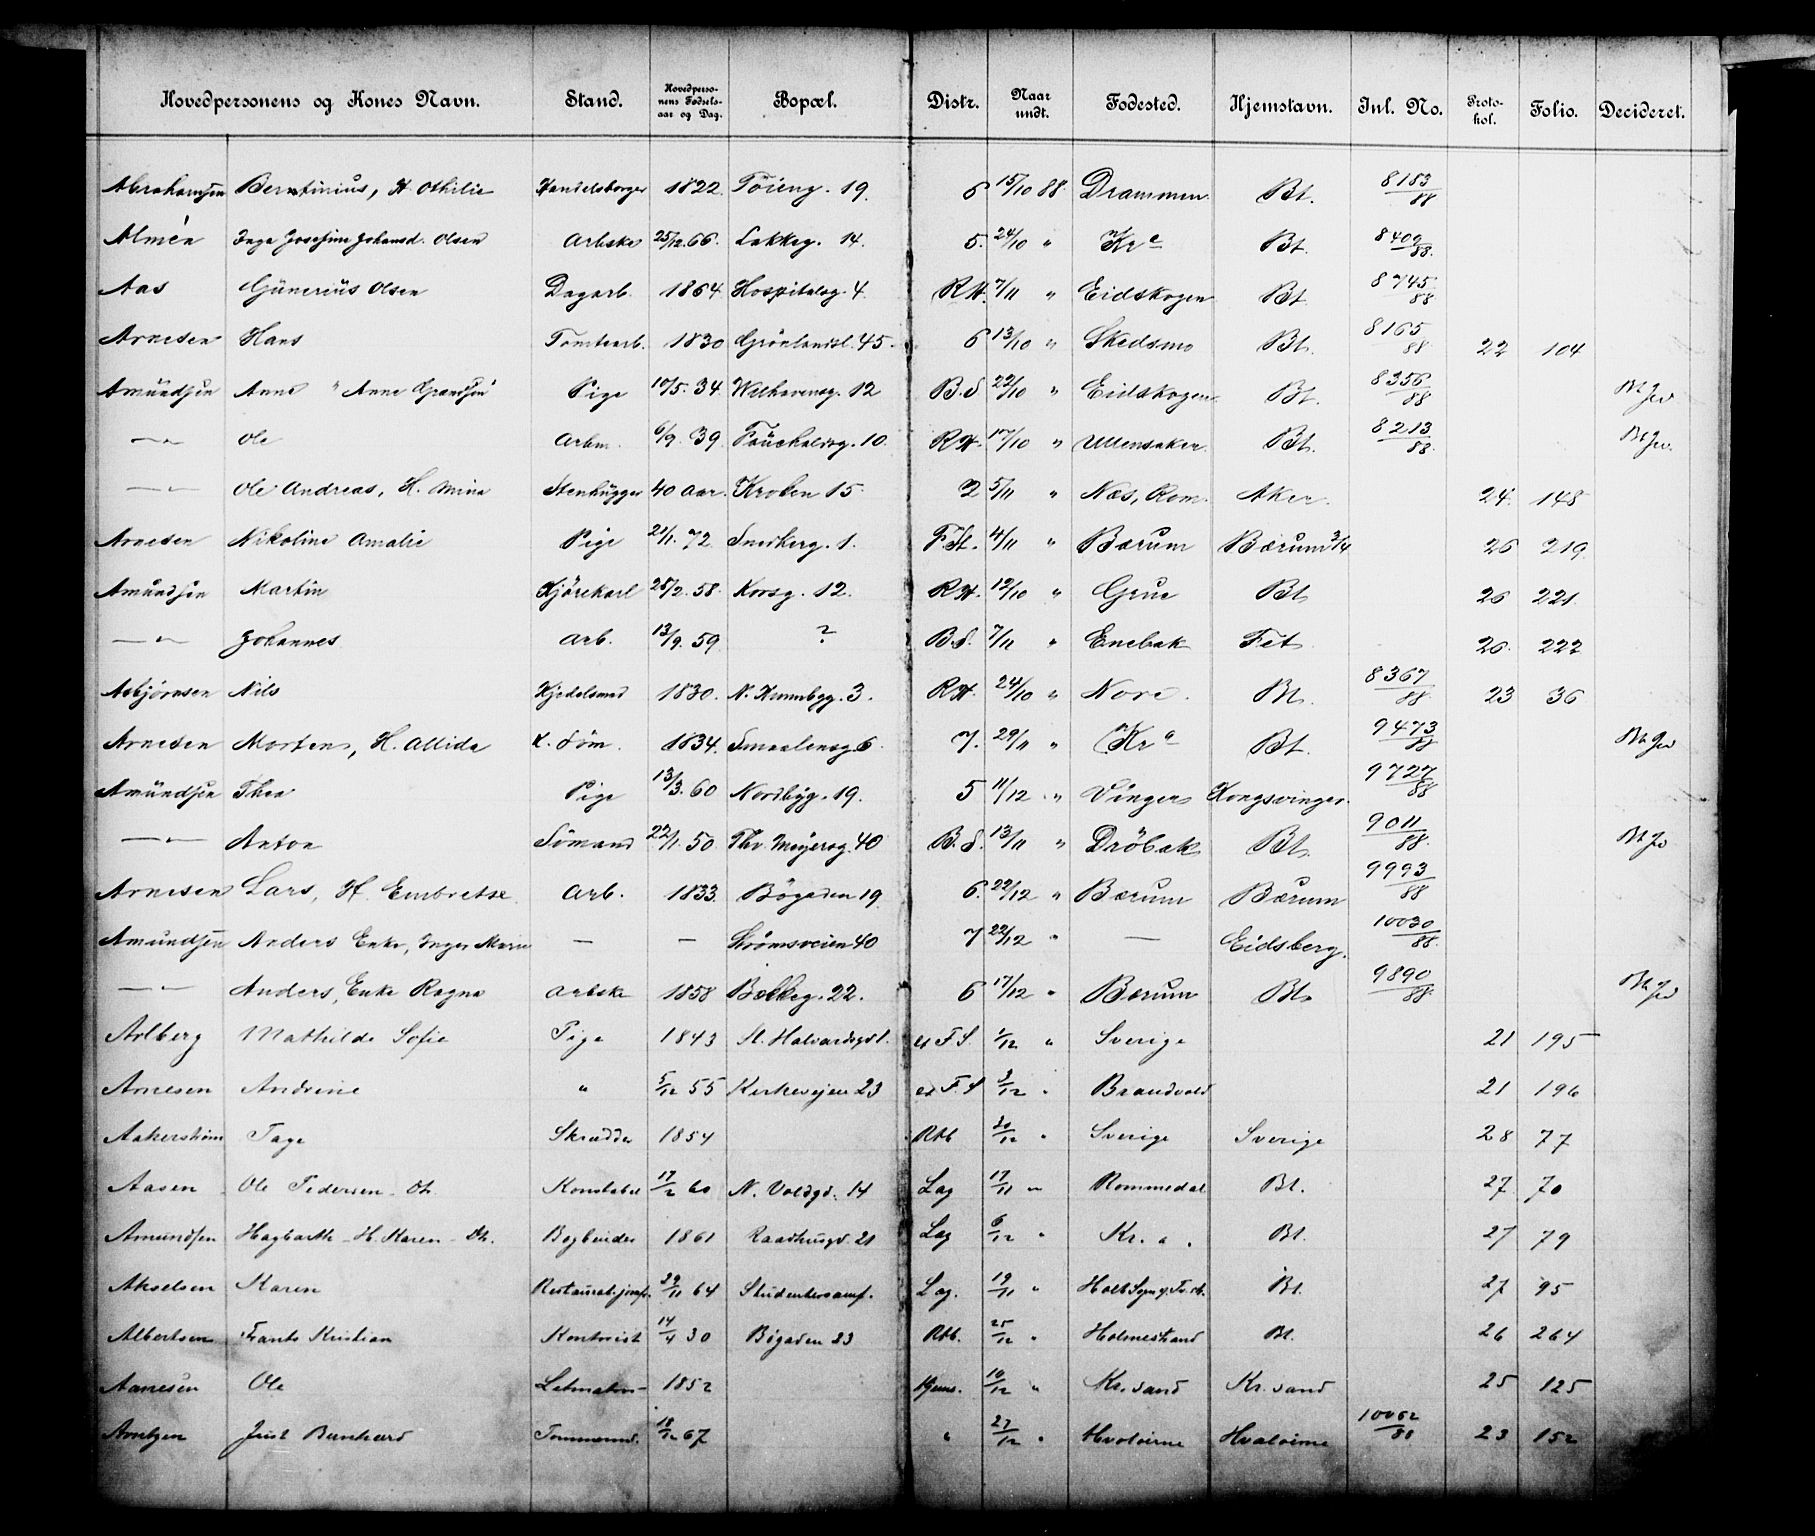 Hovedpersonens og Kones Navn. Stand. Hovedpersonens Fødselsaar og Dag. Bopæl. Distr. Naar undt. Fødested. Hjemstavn. Inl. No. Protokol. Folio. Decideret.
Abrahamsen Berntinius, H. Othilie Handelsborger 1822 Töieng. 19. 6 15/10 88 Drammen Bt. 8183/88
Almén Inga Josefine Johansd. Olsen Arbske 25/12 66. Lakkeg. 14. 5. 24/10 " Kra Bt. 8409/88
Aas Günerius Olsen Dagarb. 1864 Hospitalsg. 4. RH. 7/11 " Eidskogen Bt. 8745/88
Arnesen Hans Tomtearb. 1830 Grönlandsl. 45. 6 13/10 " Skedsmo Bt. 8165/88 22 104
Amündsen Anne " Anne " Pige 10/5. 34. Welhavensg. 12 B.S 22/10 " Eidskogen Bt. 8356/88
— " — Ole Arbm. 6/9. 39. Fauchaldsg. 10. RH. 17/10 " Ullensaker Bt. 8213/88
— " — Ole Andreas, H. Mina Stenhügger 40 Aar. Kroken 15. 2 5/11 " Næs, Rom. Aker. 24. 148
Arnesen Nikoline Amalie Pige 21/1. 72. Smedberg. 1. F.St. 4/11 " Bærum Bærum 3/4 26 219
Amündsen Martin Kjörekarl 28/2. 58. Korsg. 12. RH. 12/10 " Grue Bt. 26 221
— " — Johannes Arb. 13/9. 59 ? B.S. 7/11 " Enebak Fet 26. 222
Asbjörnsen Nils Kjedelsmed 1830. 3. RH. 24/10 " Nore. Bt. 8367/88 23 36
Arnesen Morten, H. Allida 1834. Smaalensg. 6. 7. 29/11 " Kra Bt. 9473/88
Amündsen Thea Pige 13/3. 60 Nordbyg. 19. 5 11/12 " Vinger Kongsvinger. 9727/88
— " — Anton Sömand 22/1. 50. Thv. Meyersg. 40 B.S. 13/11 " Dröbak Bt. 9011/88
Arnesen Lars, H. Embretse Arb. 1833. Bögaden 19. 6. 22/12 " Bærum Bærum 9993/88
Amundsen Anders Enke, Inger Marie — — Strömsveien 40 7 22/12 " — Eidsberg. 10030/88
— " — Anders, Enke Ragna Arbske 1858 Bakkeg. 22. 6 17/12 " Bærum Bt. 9890/88
Arlberg Mathilde Sofie Pige 1843 St. Halvardsgd 1. F.S. 1/12 " Sverige 21 195
Arnesen Andrine " 5/12 55 Kirkevejen 23 F.S 3/12 " Brandvold 21 196
Aakerström Tage Skrædder 1854 Rtb 20/12 " Sverige Sverige 28 77
Aasen Ole Pedersen Konstabel 17/2 60 N. Voldgd. 14 Lag 17/11 " Rommedal Bt. 27 70
Amundsen Hagbarth - H. Karen Bogbinder 1861 Raadhusgd. 21 Lag 6/12 " Kr. a. Bt. 27 79
Akselsen Karen Restaurat.jomfr. 29/11 64 Studentersamf. Lag. 19/11 " Holt Bt. 27 95
Albertsen Frants Kristian Kontorist 14/4 30 Bögaden 23 Rtb. 25/12 " Holmestrand Bt. 26 264
Aanesen Ole Letmatros 1852 Hjems. 10/12 " Kr.sand Kr.sand 25 125
Arntzen Just Bernhard Tømmermd. 18/12 67 " 27/12 " Hvaløerne Hvaløerne 10062/88 23 152